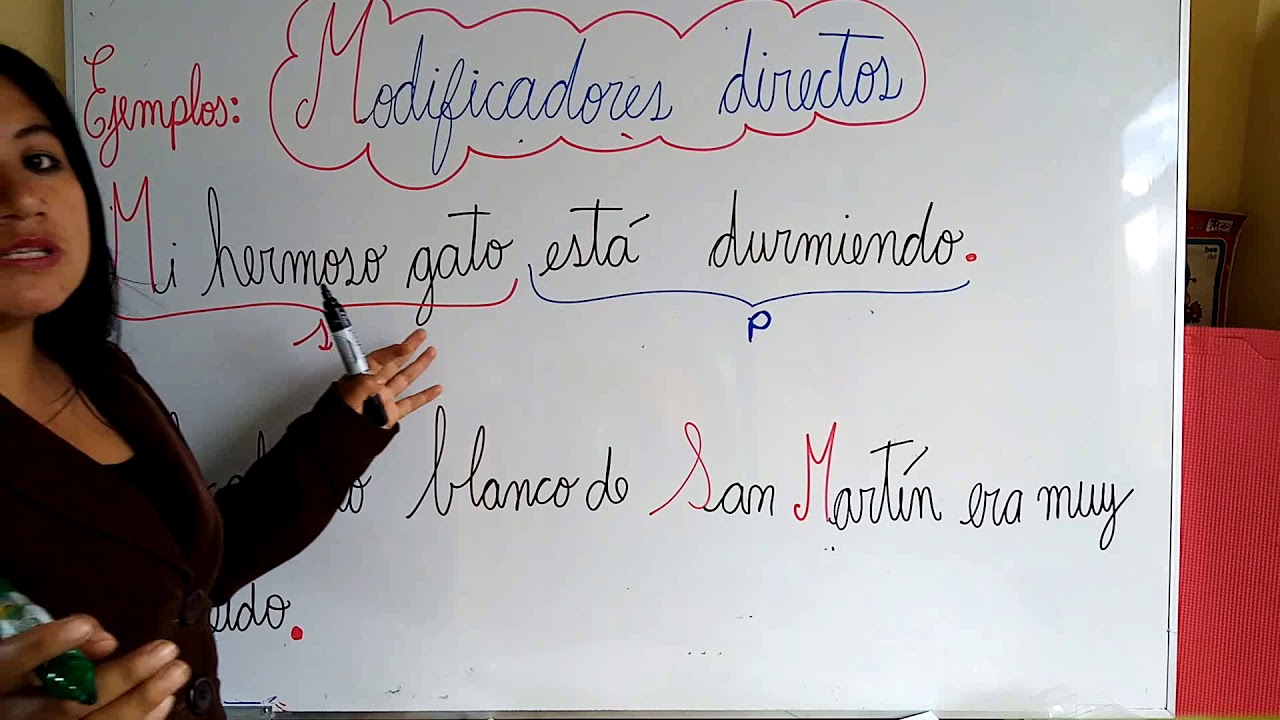 Ejemplos: Modificadores directos
Mi hermoso gato está durmiendo.
s p
blanco de San Martín era muy